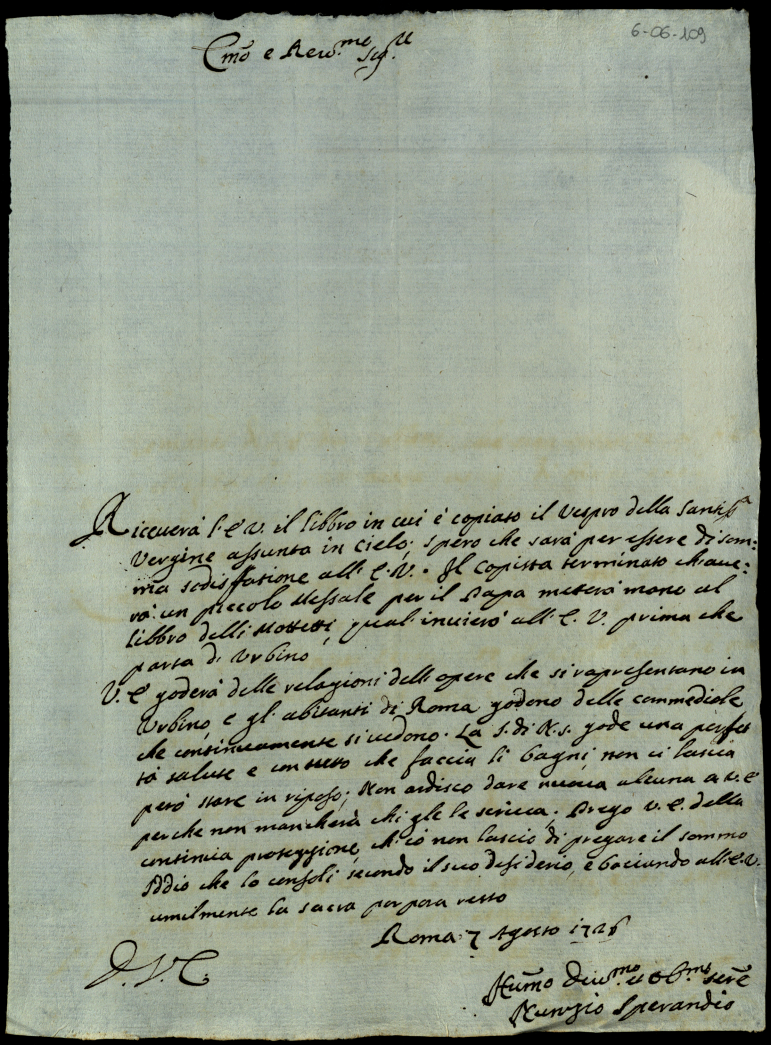 6-06-109
Emõ e Rev.mo Sig.re
Riceuerà l. E. V. il libbro in cui è copiato il Vespro della Santiss.a
Vergine assunta in Cielo; spero che sarà per essere di som=
ma sodisfatione all. E. V. Il Copista terminato ch'aue=
rà un piccolo Messale per il Papa meterà mano al
libbro delli Mottetti, quali inuierò all. E. V. prima che
parta di Vrbino
V. E. goderà delle relagioni dell opere che si rapresentano in
Vrbino, e gl'abitanti di Roma godono delle commediole
che continuamente si vedono. La S. di N. S. gode una perfet
ta salute e con tutto che faccia li bagni, non ci lascia
però stare in riposo; Non ardisco dare nuoua alcuna a V. E
perche non mancherà chi gle le scriua; Prego V. E. della
continua proteggione, ch'io non lascio di pregare il sommo
Iddio che lo consoli secondo il suo desiderio, e baciando all. E. V.
umilmente la sacra porpora resto
Roma 7 Agosto 1726
D. V. E.
Humo Deuo.mo et Ob.mo seruẽ
Nunzio Sperandio